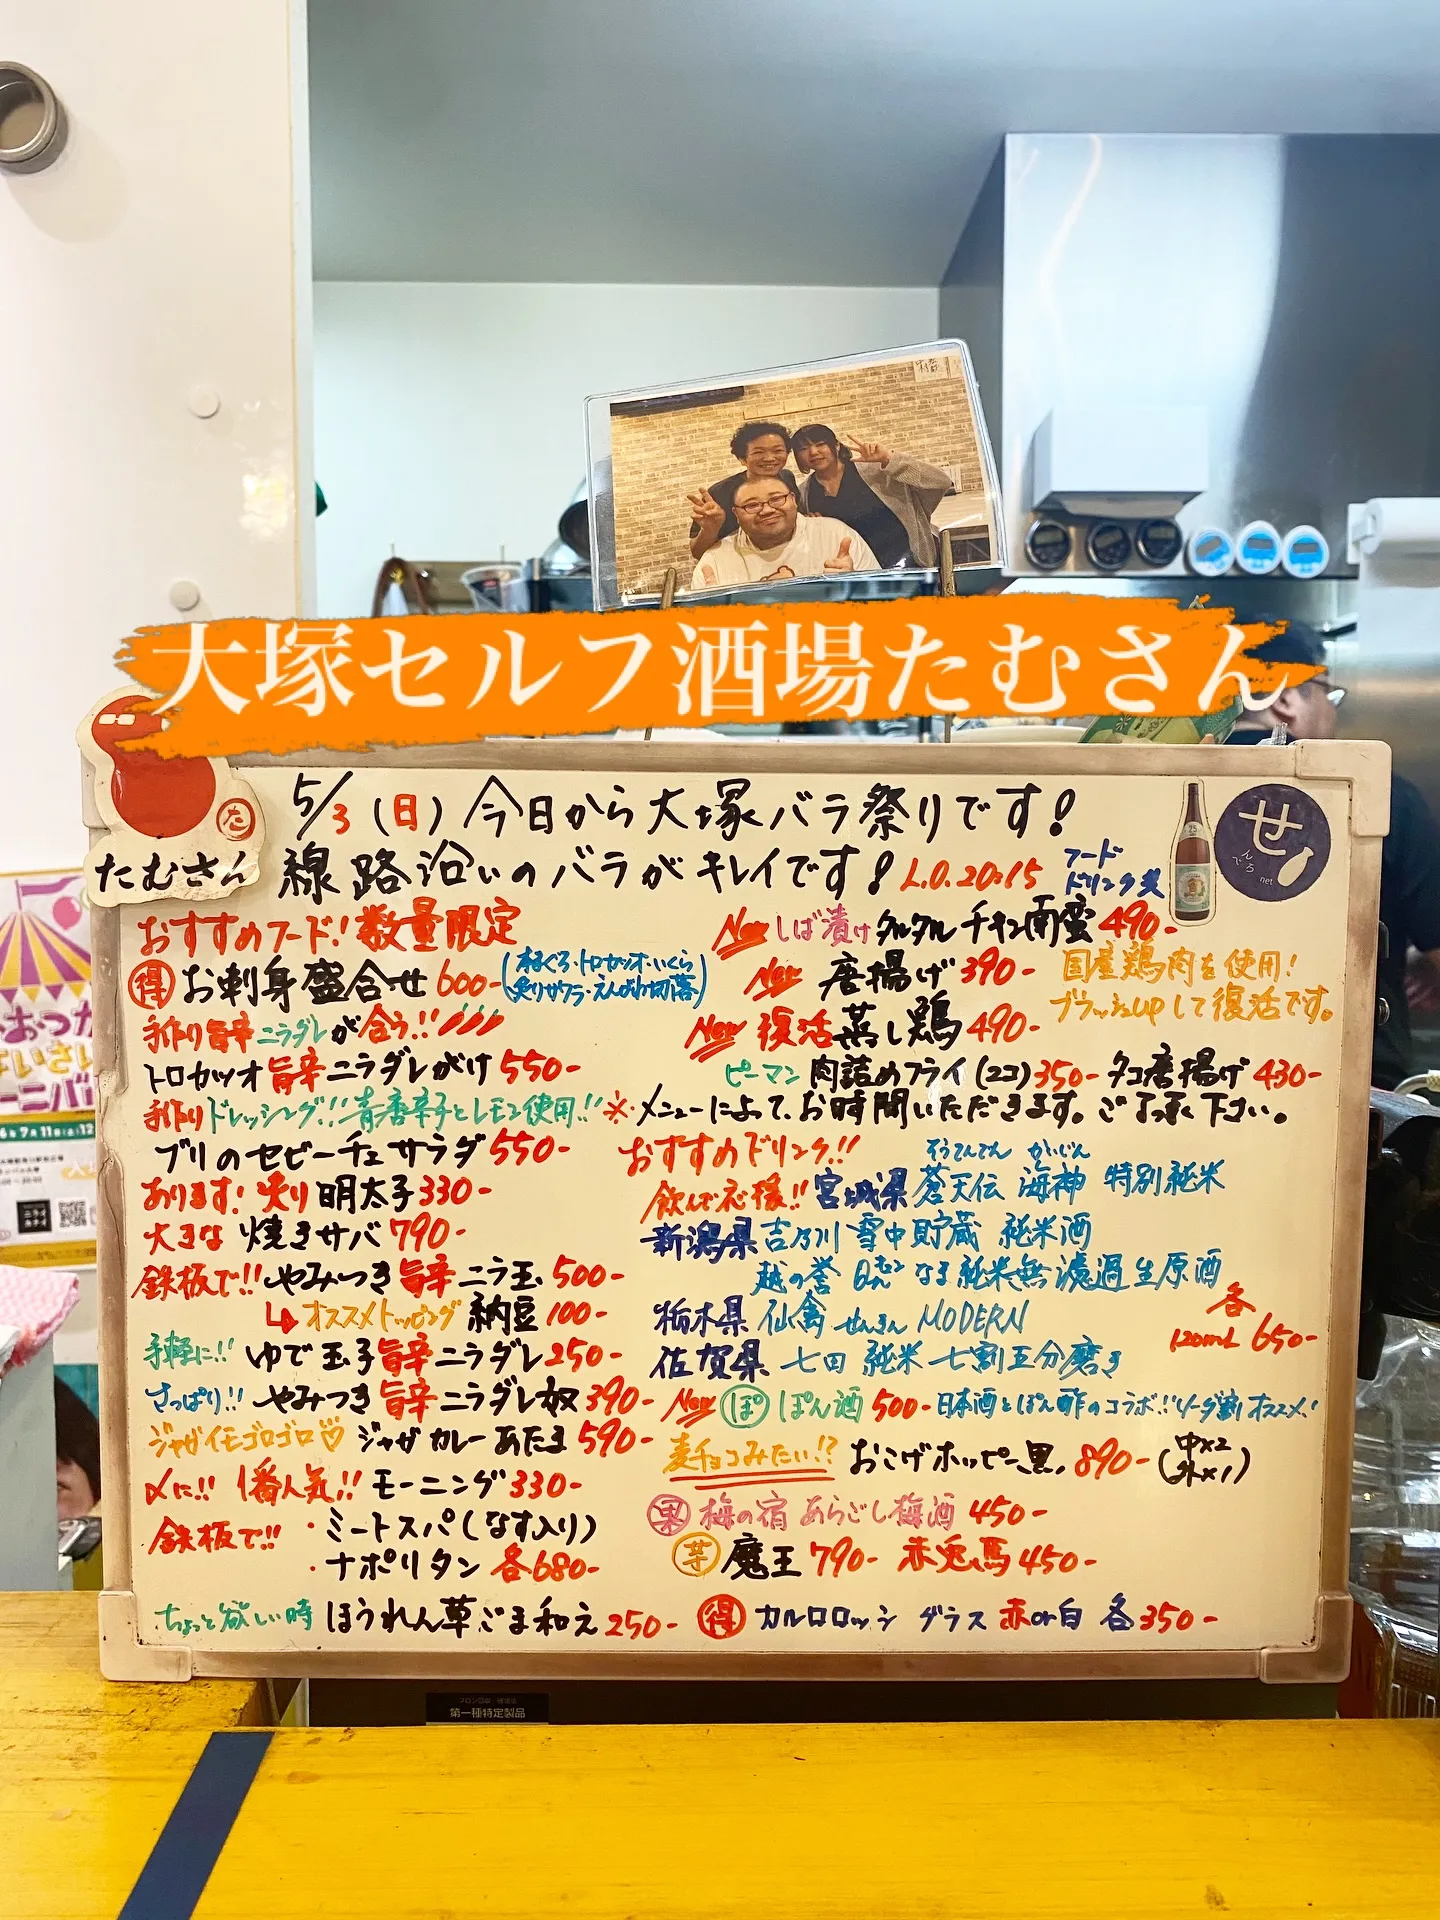 大塚セルフ酒場たむさん
たむさん
5/3(日)今日から大塚バラ祭りです!
線路沿いのバラがキレイです! L.O.20:15 フードドリンク共
せんでろ net
おすすめフード!数量限定
得 お刺身盛合せ 600-(本まぐろ・トロカツオ・いくら
炙りサワラ・えんがわ切落)
手作り旨辛ニラダレが合う!!
トロカツオ旨辛ニラダレがけ 550-
手作りドレッシング!!青唐辛子とレモン使用!!
ブリのセビーチェサラダ 550-
あります!炙り明太子 330-
大きな 焼きサバ 790-
鉄板で!!やみつき旨辛ニラ玉 500-
↳オススメトッピング 納豆 100-
手軽に!! ゆで玉子旨辛ニラダレ 250-
さっぱり!! やみつき旨辛ニラダレ奴 390-
ジャガイモゴロゴロ♡ ジャガカレーあたま 590-
〆に!! 1番人気!! モーニング 330-
鉄板で!! ・ミートスパ(なす入り)
・ナポリタン 各680-
ちょっと欲しい時 ほうれん草ごま和え 250-
New しば漬けタルタルチキン南蛮 490-
New 唐揚げ 390-
国産鶏肉を使用!
ブラッシュupして復活です。
New 復活蒸し鶏 490-
ピーマン肉詰めフライ(2コ)350- タコ唐揚げ 430-
※メニューによって、お時間いただきます。ご了承下さい。
おすすめドリンク!!
飲んで応援!! 宮城県 蒼天伝 海神 特別純米
そうてんでん かいじん
新潟県 吉乃川 雪中貯蔵 純米酒
越の誉 なま純米無濾過生原酒
栃木県 仙禽 せんきん MODERN
佐賀県 七田 純米 七割五分磨き
各120mL 650-
New ぽ ぽん酒 500- 日本酒とぽん酢のコラボ!!ソーダ割オススメ!
麦チョコみたい!? おこげホッピー黒 890-(中×2
外×1)
果 梅の宿 あらごし梅酒 450-
芋 魔王 790- 赤兎馬 450-
得 カルロロッシ グラス 赤or白 各350-
第一種特定製品